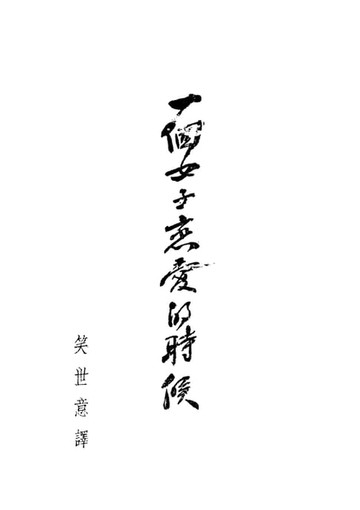 一個女子戀愛的時候
笑世意譯